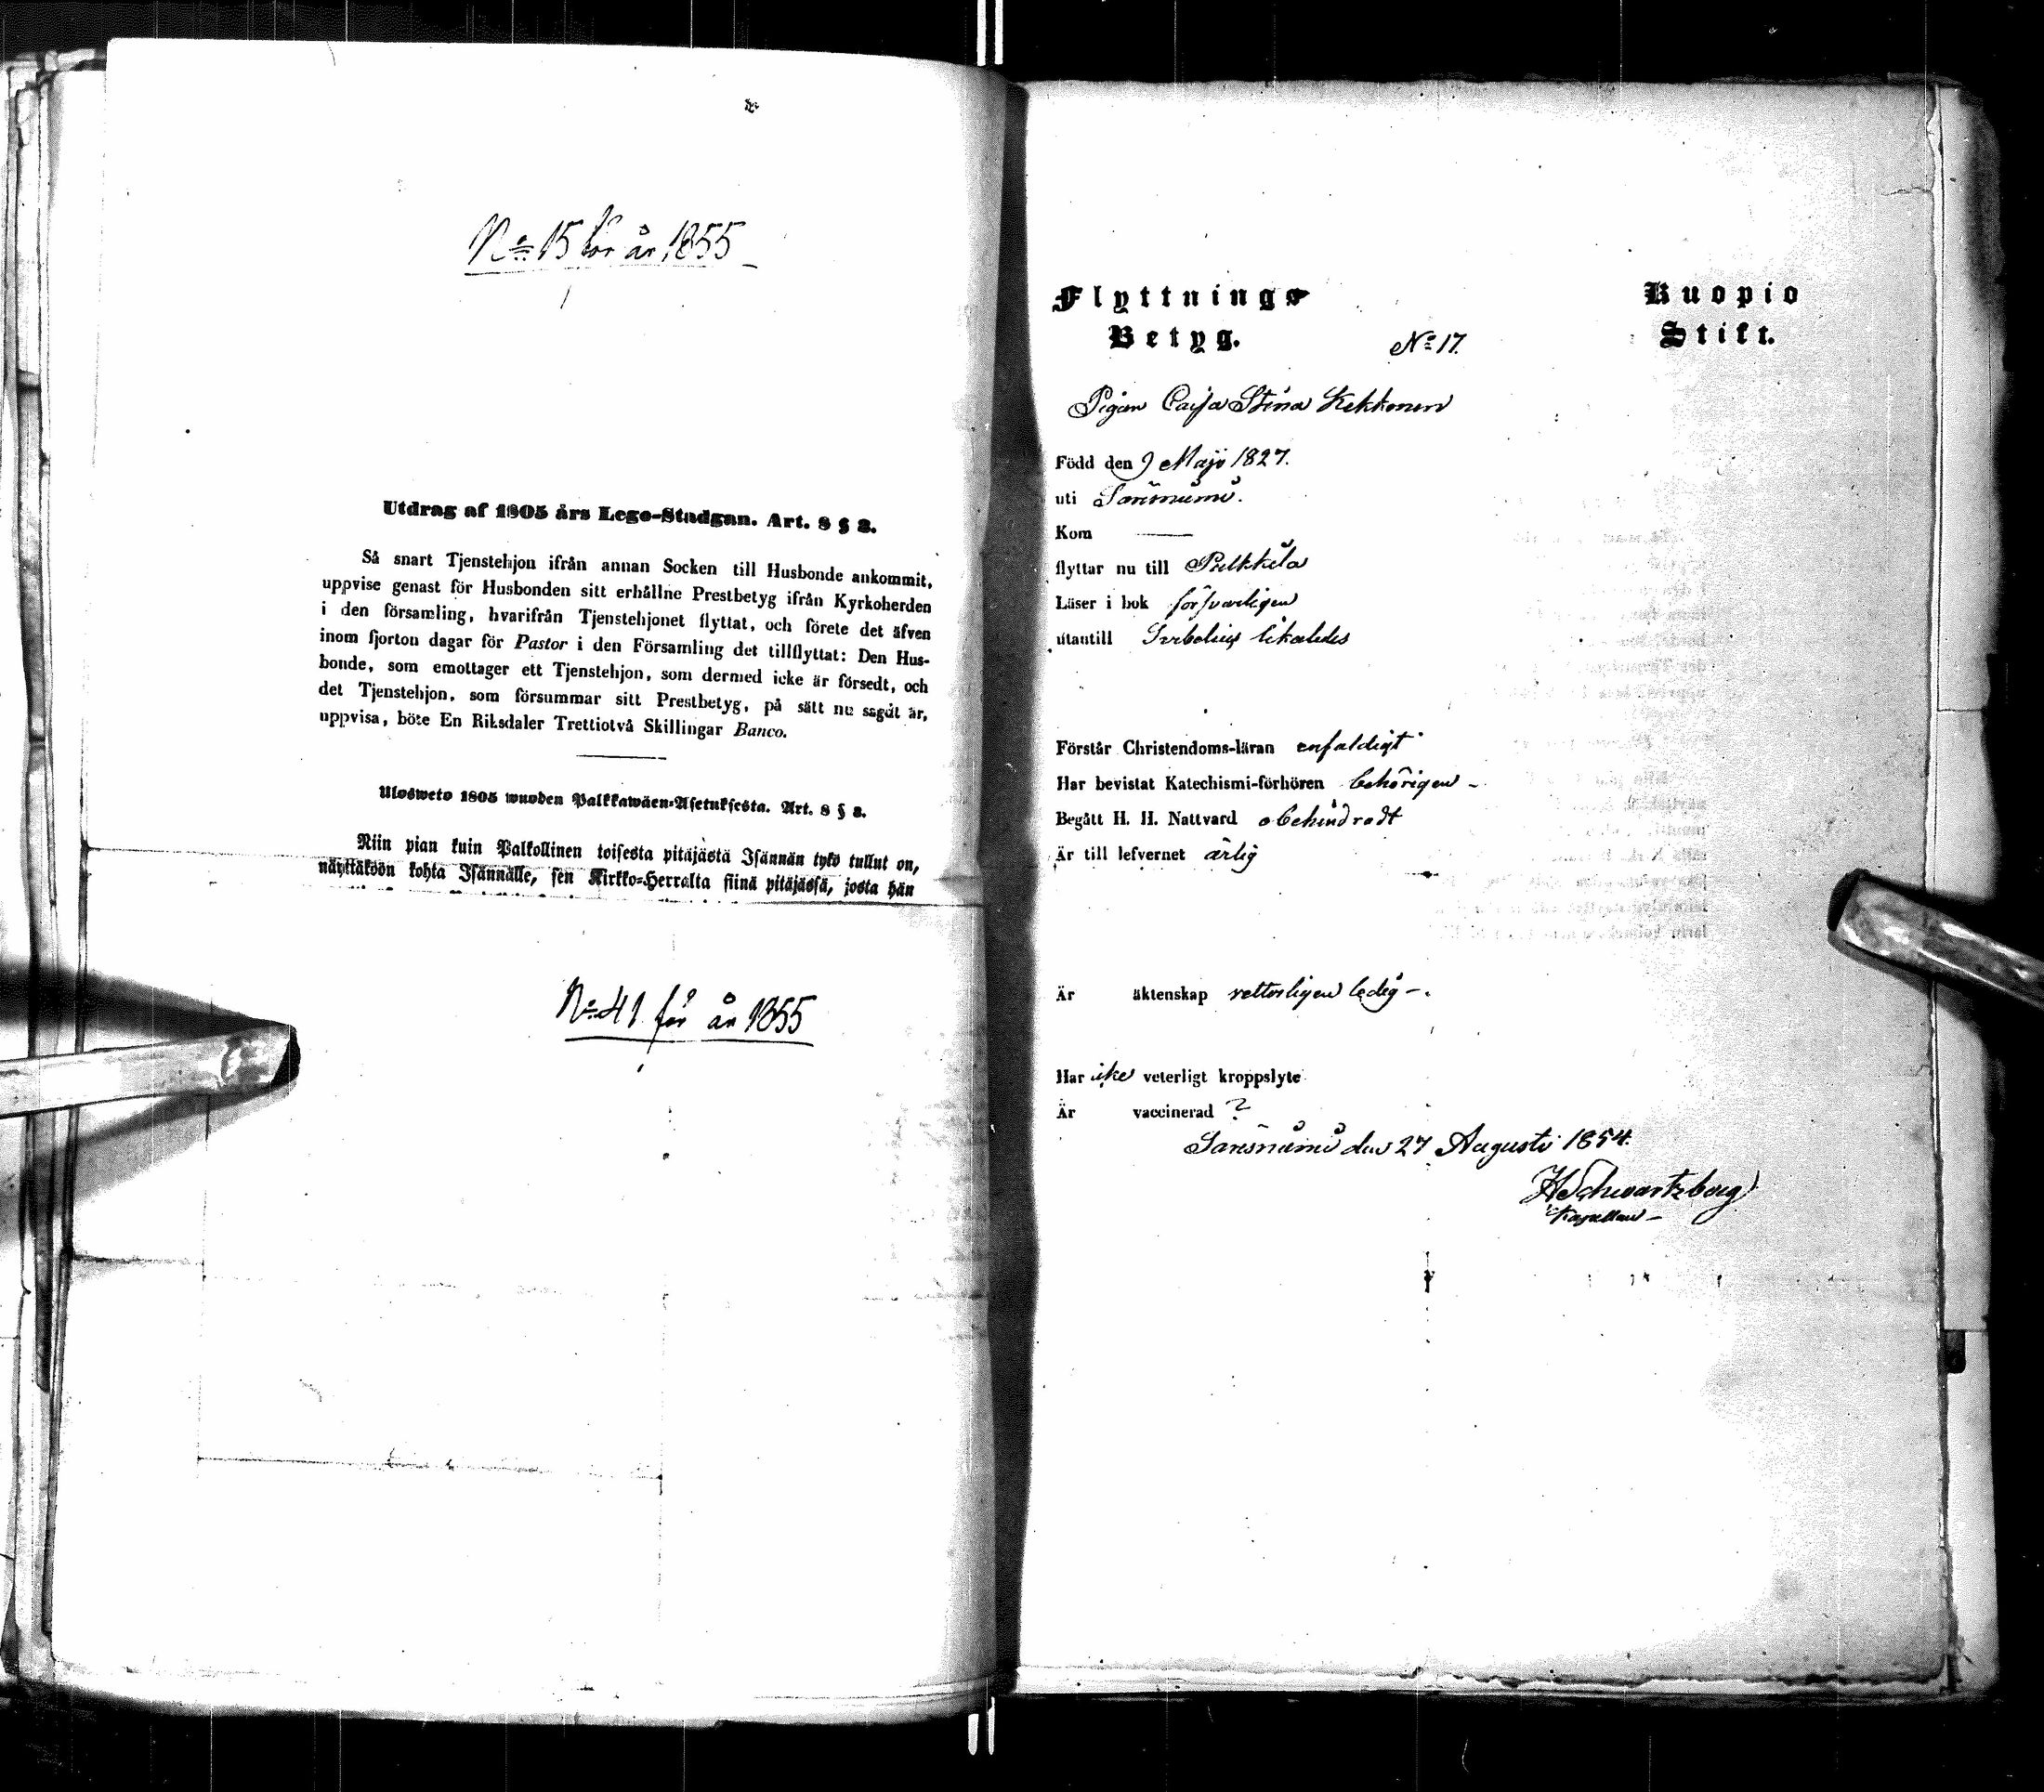 No 15 för år 1855
Utdrag af 1805 års Lego-Stadgan. Art. 8 § 2.
Så snart Tjenstehjon ifrån annan Socken till Husbonde ankommit,
uppvise genast för Husbonden sitt erhållne Prestbetyg ifrån Kyrkoherden
i den församling, hvarifrån Tjenstehjonet flyttat, och förete det äfven
inom fjorton dagar för Pastor i den Församling det tillflyttat: Den Hus-
bonde, som emottager ett Tjenstehjon, som dermed icke är försedt, och
det Tjenstehjon, som försummar sitt Prestbetyg, på sätt nu sagdt är,
uppvisa, böte En Riksdaler Trettiotvå Skillingar Banco.
Ulosweto 1805 wuoden Palkkawäen-Asetuksesta. Art. 8 § 2.
Niin pian kuin Palkollinen toisesta pitäjästä Isännän tykö tullut on,
näyttäköön kohta Isännälle, sen Kirkko-Herralta siinä pitäjässä, josta hän
No 41 för år 1855
Flyttnings Kuopio
Betyg. No 17. Stift.
Pigan Caisa Stina Kekkonen
Född den 9 Maji 1827.
uti Sonkajärvi
Kom
flyttar nu till Pulkkila
Läser i bok försvarligen
utantill Svebelius likaledes
Förstår Christendoms-läran enfaldigt
Har bevistat Katechismi-förhören behörigen
Begått H. H. Nattvard obehindradt
Är till lefvernet ärlig
Är äktenskap vetterligen ledig
Har icke veterligt kroppslyte
Är vaccinerad ?
den 27 Augusti 1854.
H Schwartzberg
Kapellan